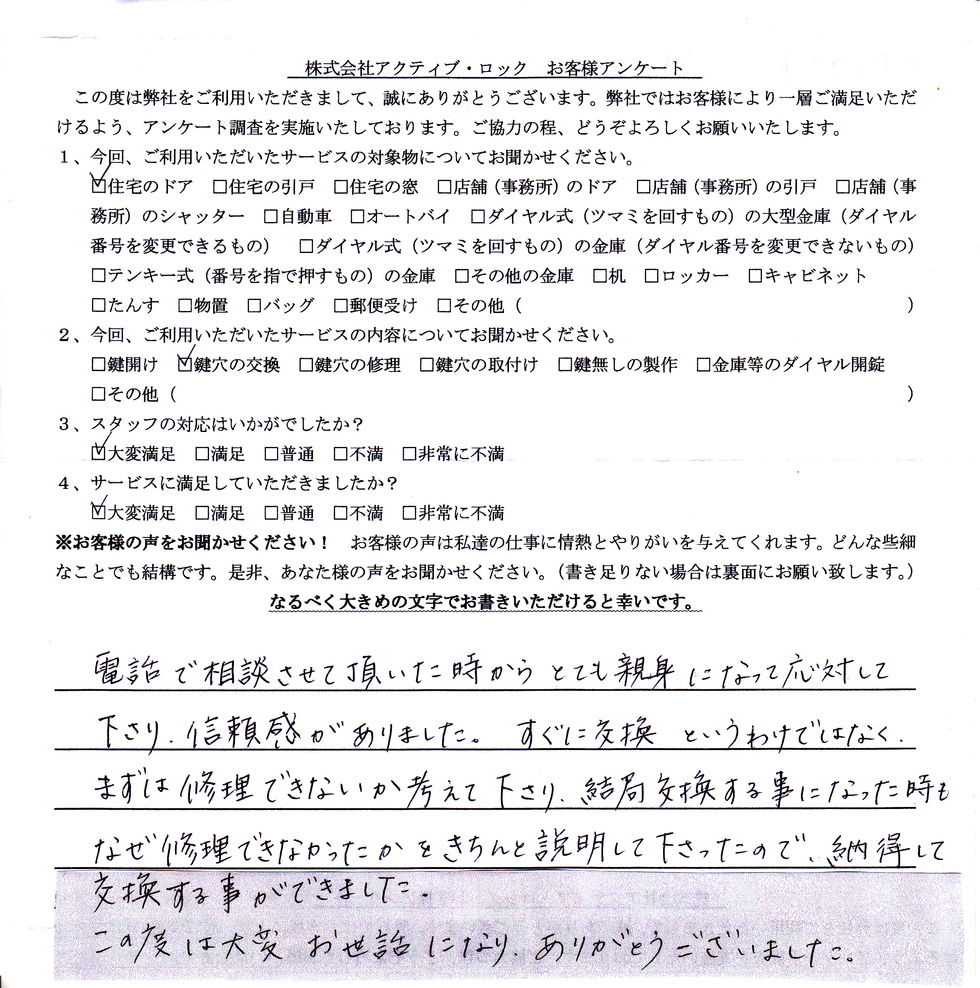 株式会社アクティブ・ロック　お客様アンケート
この度は弊社をご利用いただきまして、誠にありがとうございます。弊社ではお客様により一層ご満足いただ
けるよう、アンケート調査を実施いたしております。ご協力の程、どうぞよろしくお願いいたします。
1、今回、ご利用いただいたサービスの対象物についてお聞かせください。
☑住宅のドア　□住宅の引戸　□住宅の窓　□店舗（事務所）のドア　□店舗（事務所）の引戸　□店舗（事
務所）のシャッター　□自動車　□オートバイ　□ダイヤル式（ツマミを回すもの）の大型金庫（ダイヤル
番号を変更できるもの）　□ダイヤル式（ツマミを回すもの）の金庫（ダイヤル番号を変更できないもの）
□テンキー式（番号を指で押すもの）の金庫　□その他の金庫　□机　□ロッカー　□キャビネット
□たんす　□物置　□バッグ　□郵便受け　□その他（　　　　　）
2、今回、ご利用いただいたサービスの内容についてお聞かせください。
□鍵開け　☑鍵穴の交換　□鍵穴の修理　□鍵穴の取付け　□鍵無しの製作　□金庫等のダイヤル開錠
□その他（　　　　　）
3、スタッフの対応はいかがでしたか？
☑大変満足　□満足　□普通　□不満　□非常に不満
4、サービスに満足していただきましたか？
☑大変満足　□満足　□普通　□不満　□非常に不満
※お客様の声をお聞かせください！　お客様の声は私達の仕事に情熱とやりがいを与えてくれます。どんな些細
なことでも結構です。是非、あなた様の声をお聞かせください。（書き足りない場合は裏面にお願い致します。）
なるべく大きめの文字でお書きいただけると幸いです。
電話で相談させて頂いた時からとても親身になって応対して
下さり、信頼感がありました。すぐに交換というわけではなく、
まずは修理できないか考えて下さり、結局交換する事になった時も
なぜ修理できなかったかをきちんと説明して下さったので、納得して
交換する事ができました。
この度は大変お世話になり、ありがとうございました。